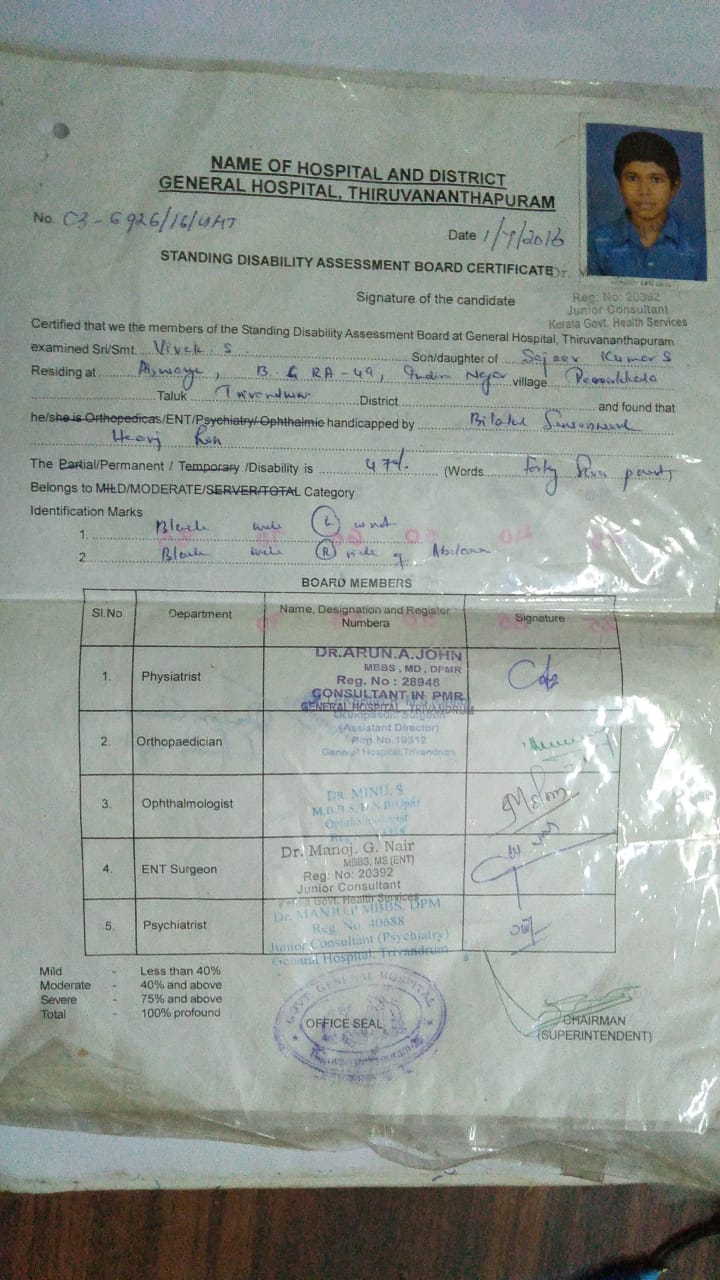 NAME OF HOSPITAL AND DISTRICT
GENERAL HOSPITAL, THIRUVANANTHAPURAM
No. C3-6926/16/GHT
Date 1/7/2016
STANDING DISABILITY ASSESSMENT BOARD CERTIFICATE
Signature of the candidate
Reg: No: 20392
Junior Consultant
Kerala Govt. Health Services
Certified that we the members of the Standing Disability Assessment Board at General Hospital, Thiruvananthapuram
examined Sri/Smt. Vivek. S Son/daughter of Sajeev Kumar S
Residing at B G RA-49, Nagar village
Taluk Trivandrum District and found that
he/she is Orthopedicas/ENT/Psychiatry/ Ophthalmic handicapped by Bilateral
The Partial/Permanent / Temporary /Disability is 47% (Words forty
Belongs to MILD/MODERATE/SERVER/TOTAL Category
Identification Marks
1. Black mole (L)
2. Black mole (R) side of Abdomen
BOARD MEMBERS
Sl.No. Department Name, Designation and Register Numbera Signature
1. Physiatrist
DR.ARUN.A.JOHN
MBBS, MD, DPMR
Reg. No : 28948
CONSULTANT IN PMR
GENERAL HOSPITAL, TRIVANDRUM
2. Orthopaedician
Orthopaedic Surgeon
(Assistant Director)
Reg.No.19312
General Hospital, Trivandrum
3. Ophthalmologist
DR. MINU. S
4. ENT Surgeon
Dr. Manoj. G. Nair
MBBS, MS (ENT)
Reg: No: 20392
Junior Consultant
Kerala Govt. Health Services
5. Psychiatrist
MBBS, DPM
Reg. No. 40688
Junior Consultant (Psychiatry)
General Hospital, Trivandrum
Mild - Less than 40%
Moderate - 40% and above
Severe - 75% and above
Total - 100% profound
GOVT GENERAL HOSPITAL
OFFICE SEAL
CHAIRMAN
(SUPERINTENDENT)